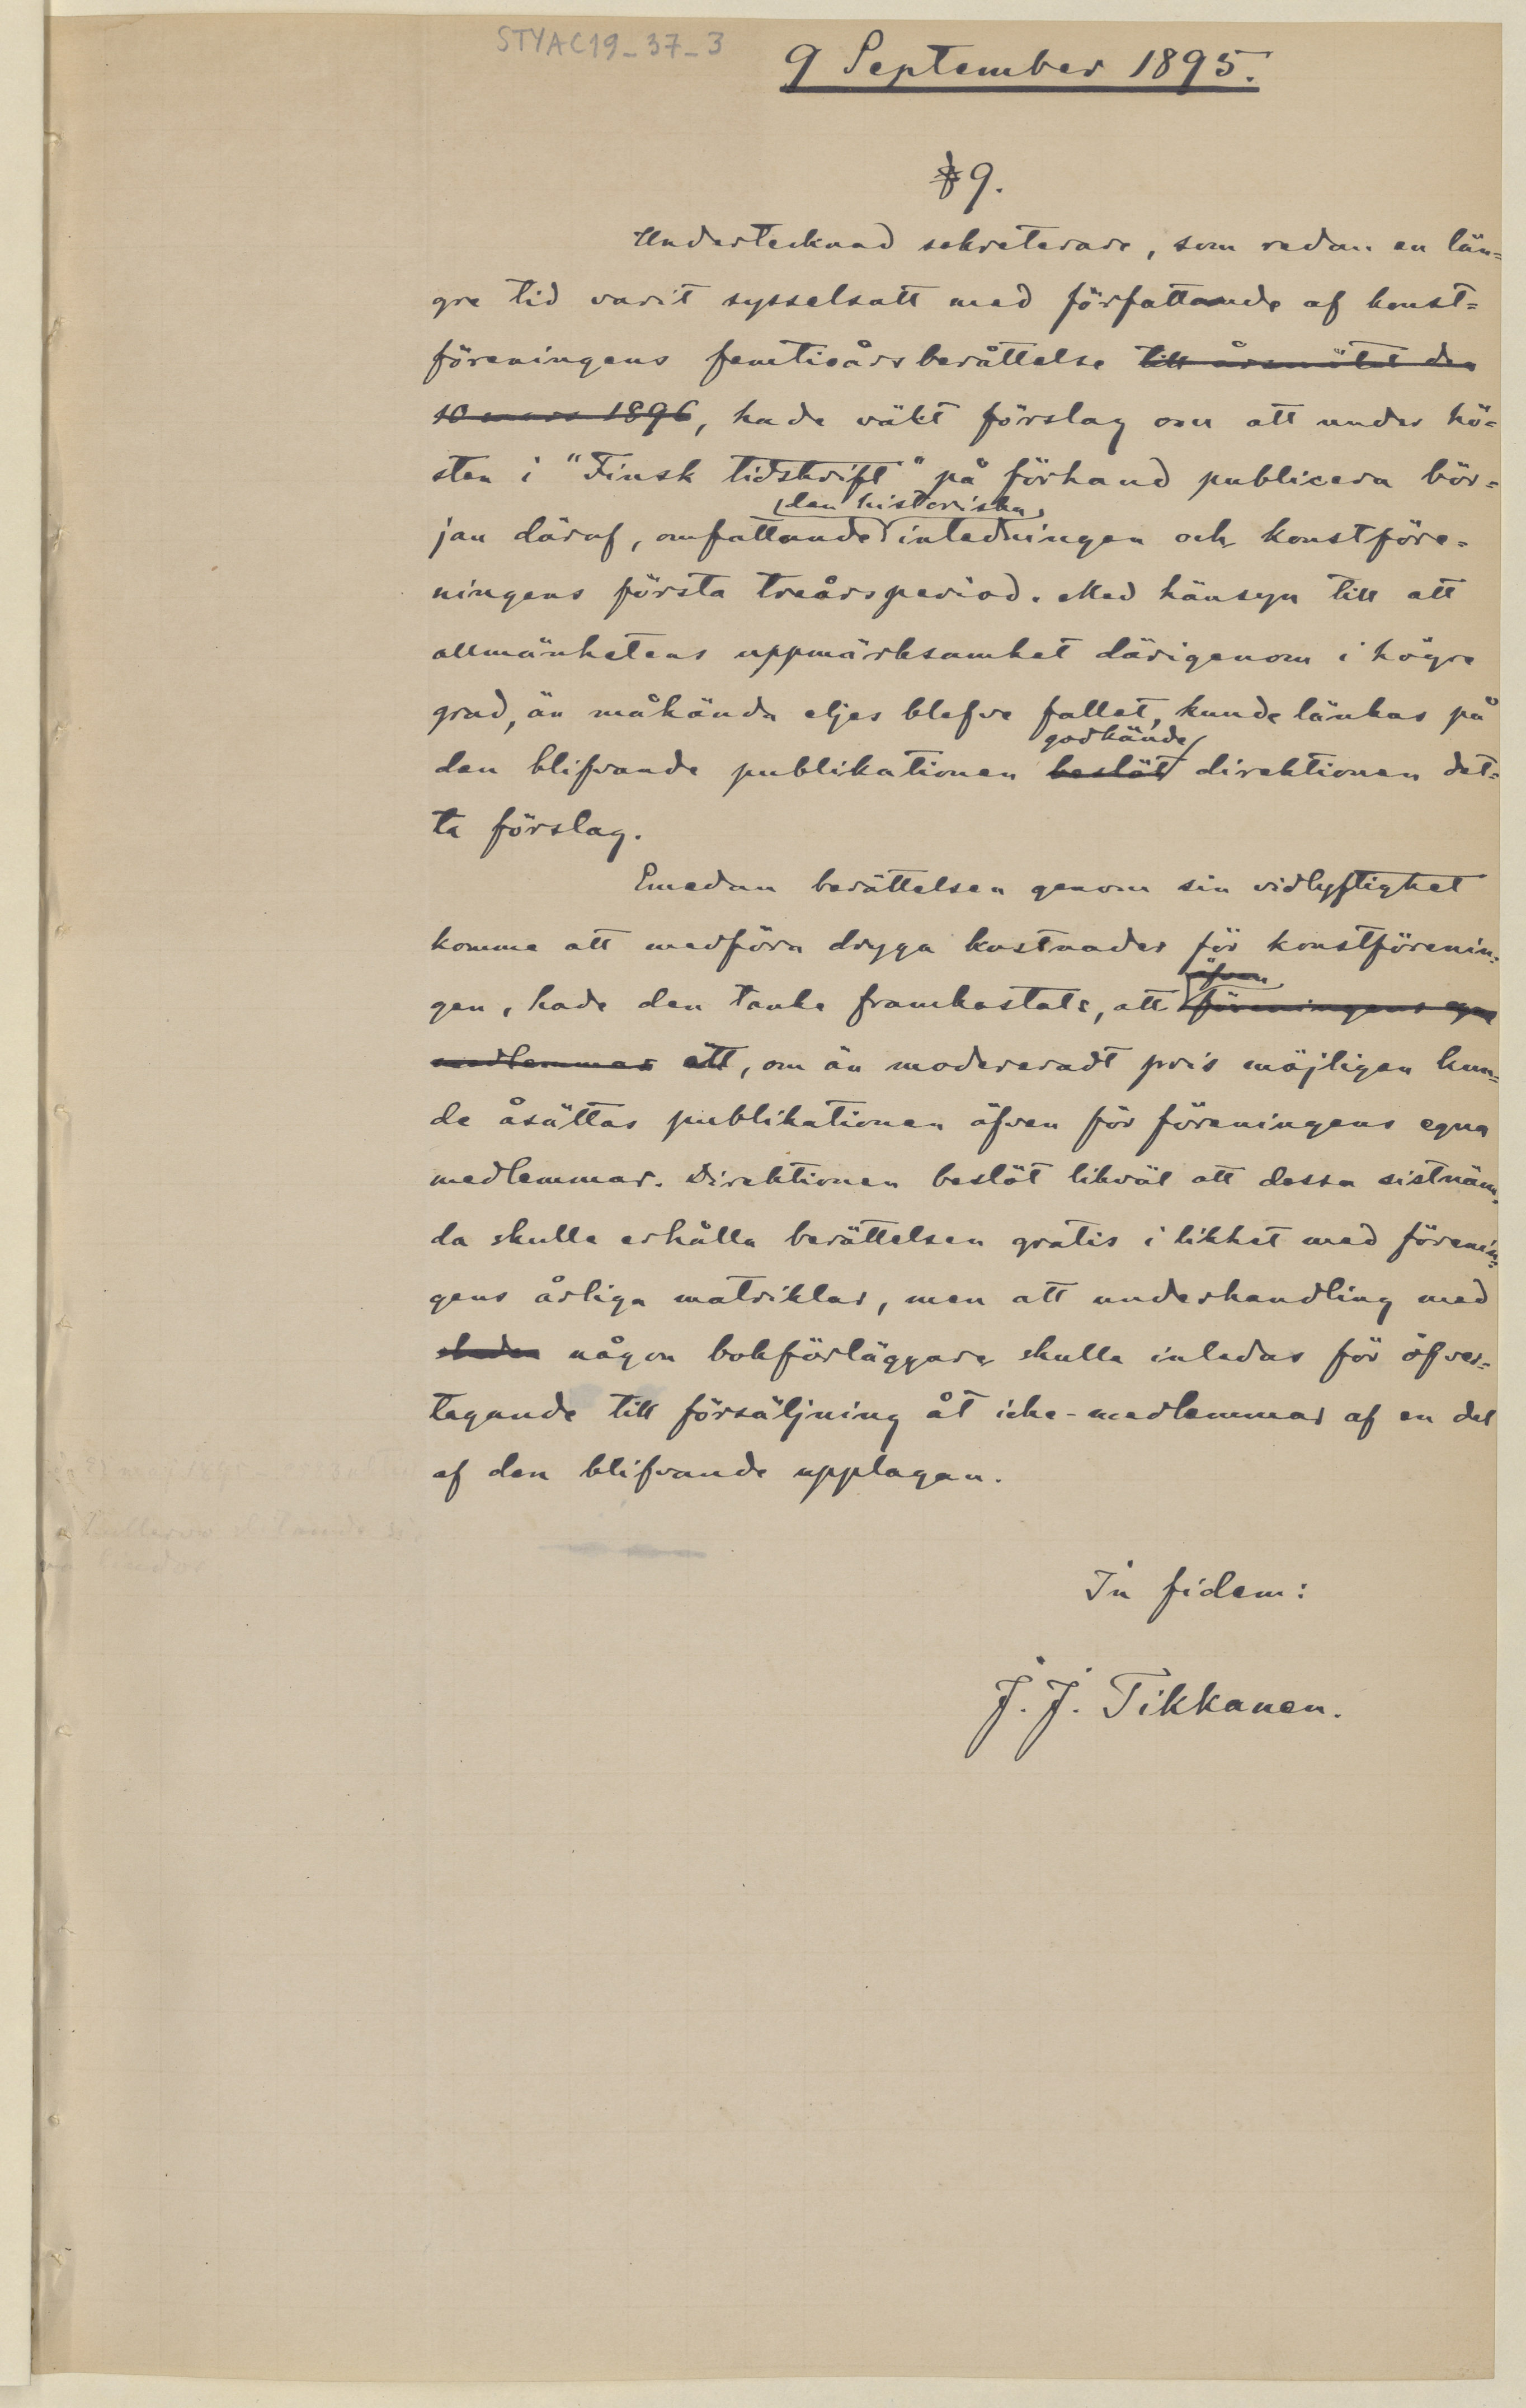 STYAC19_37_3
9 September 1895.
§ 9.
Undertecknad sekreterare, som redan en län=
gre tid varit sysselsatt med författande af konst=
föreningens femtioårsberättelse till årsmötet den
10 mars 1896, hade väkt förslag om att under hö=
sten i "Finsk tidskrift" på förhand publicera bör=
den historiska
jan däraf, omfattande inledningen och konstföre=
ningens första treårsperiod. Med hänsyn till att
allmänhetens uppmärksamhet därigenom i högre
grad, än måhända eljes blefve fallet, kunde länkas på
godkände
den blifvande publikationen beslöt direktionen det=
ta förslag.
Emedan berättelsen genom sin vidlyftighet
komme att medföra dryga kostnader för konstförenin=
äfven
gen, hade den tanke framkastats, att föreningens egna
medlemmar ett, om än modereradt pris möjligen kun=
de åsättas publikationen äfven för föreningens egna
medlemmar. Direktionen beslöt likväl att dessa sistnäm=
da skulle erhålla berättelsen gratis i likhet med förenin=
gens årliga matriklar, men att underhandling med
någon bokförläggare skulle inledas för öfver=
tagande till försäljning åt icke-medlemmar af en del
af den blifvande upplagan.
In fidem:
J. J. Tikkanen.